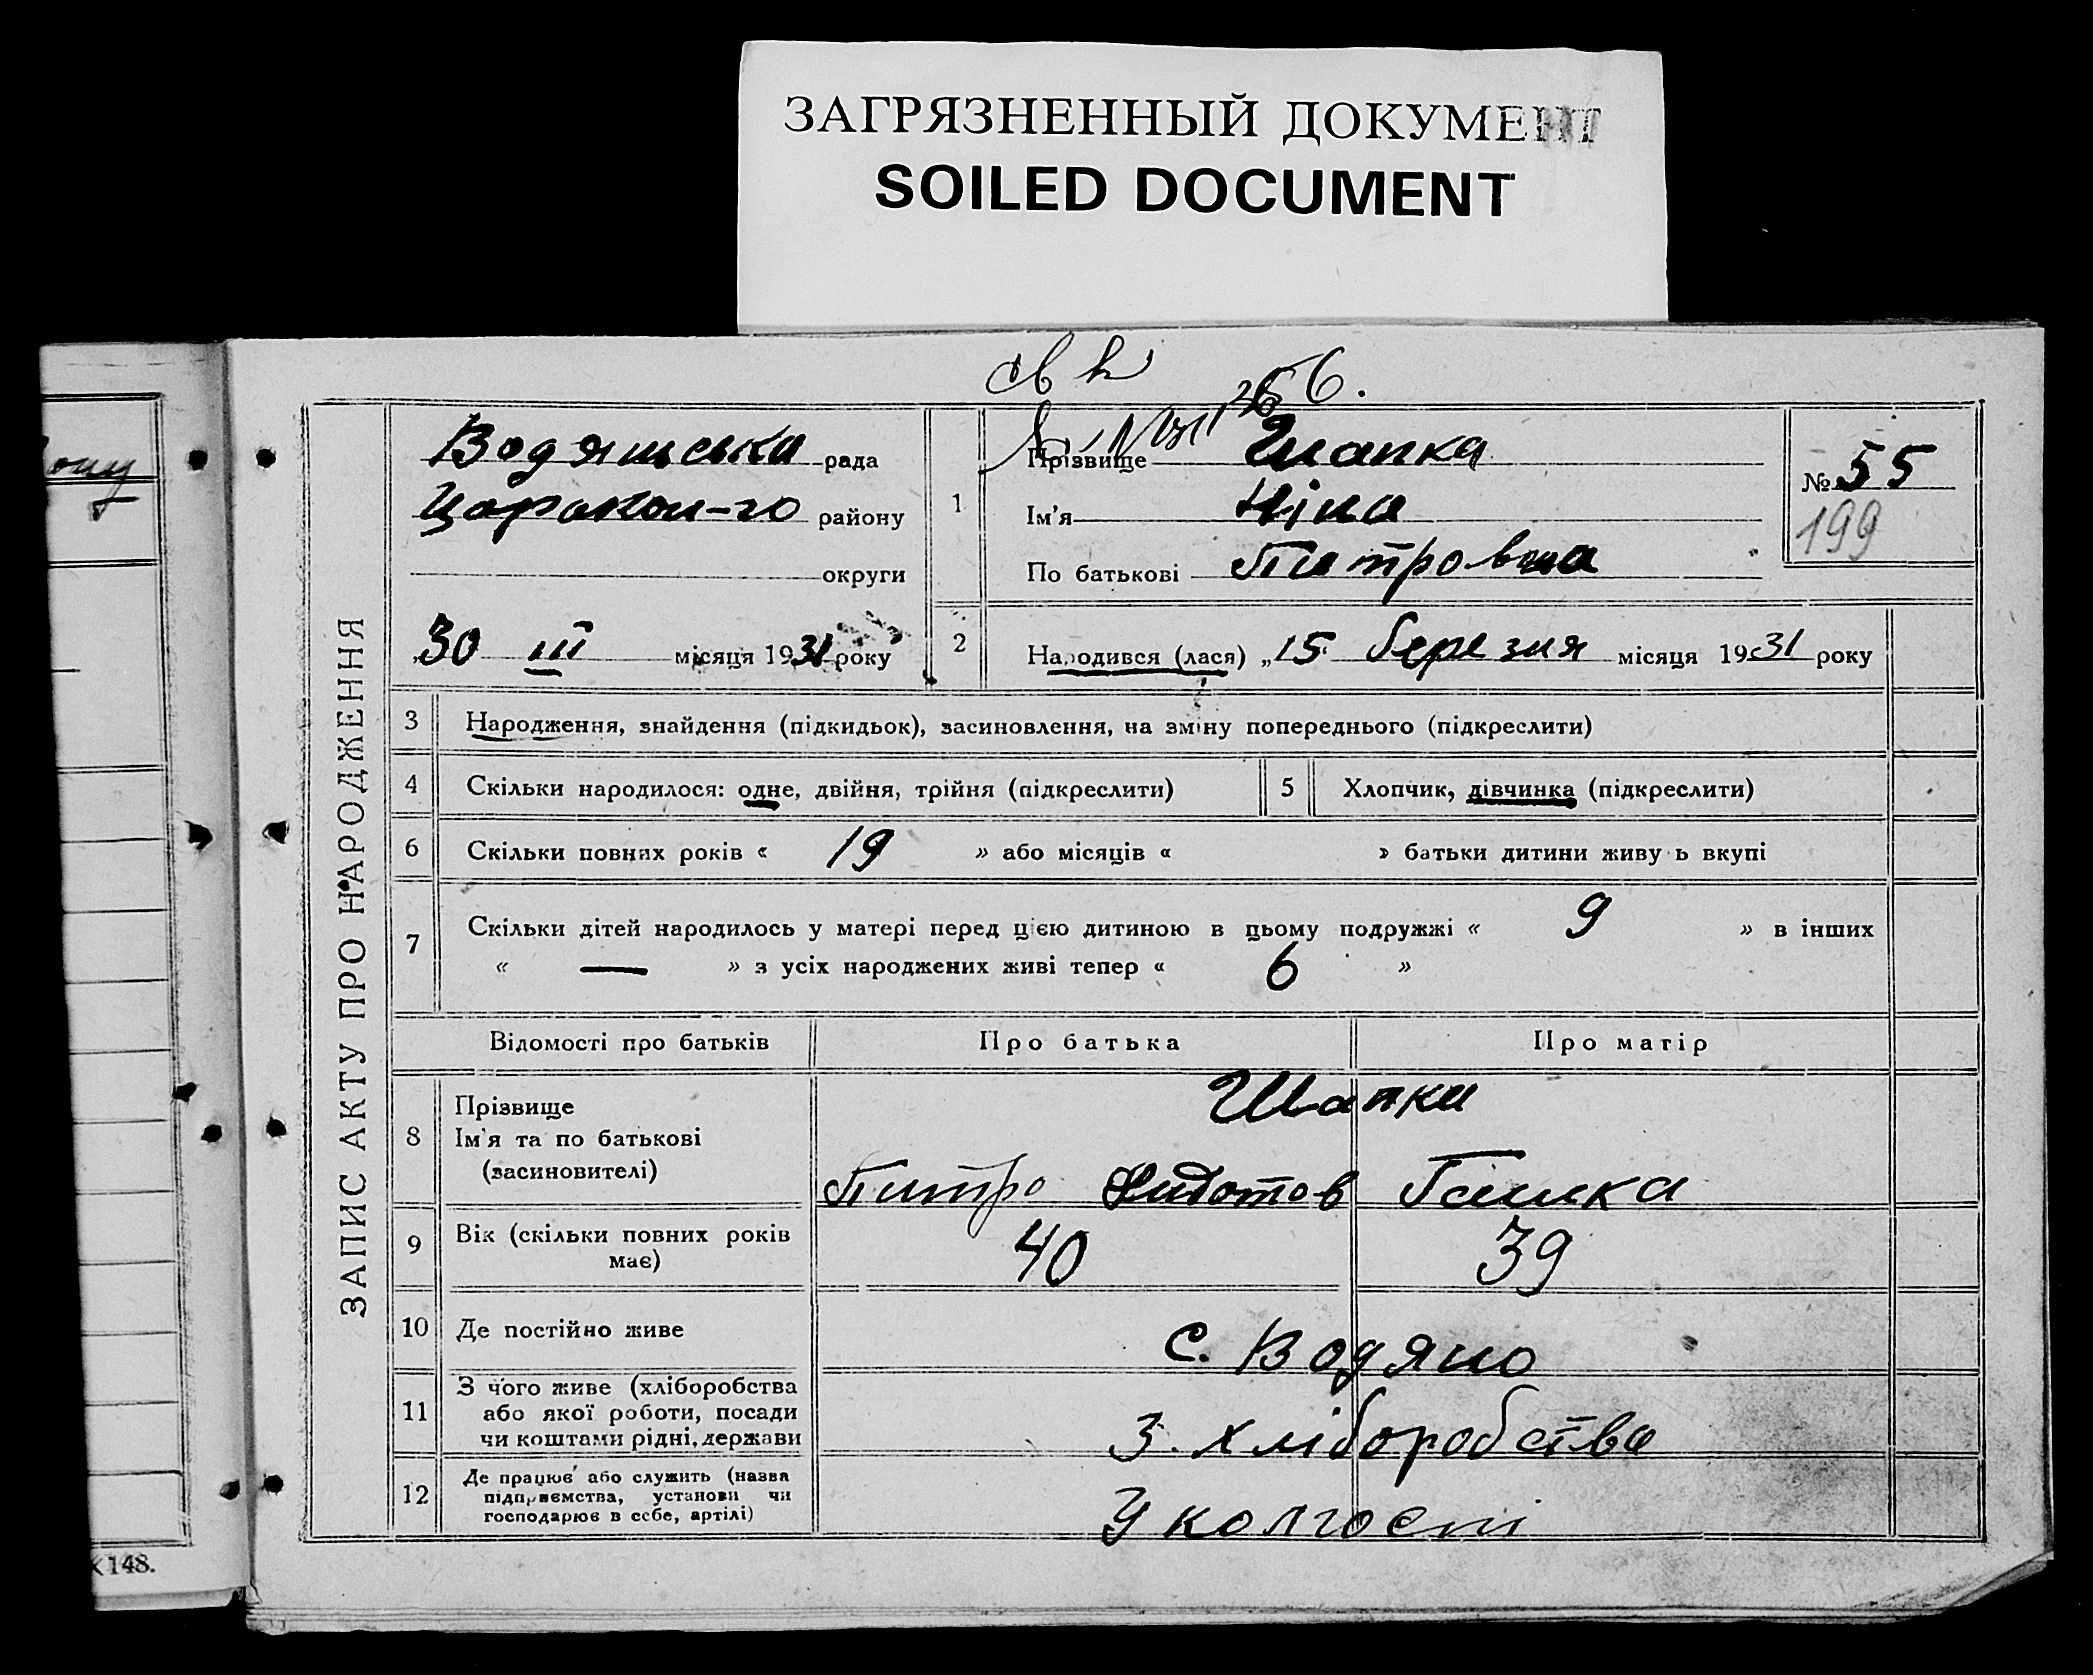 ЗАГРЯЗНЕННЫЙ ДОКУМЕНТ
SOILED DOCUMENT
ЗАПИС АКТУ ПРО НАРОДЖЕННЯ
Водянська рада
району
округи
30 III місяця 1931 року
1
Прізвище Шапка
Ім'я Ніна
По батькові Питровна
№ 55
199
2
Народився (лася) „15 березня місяця 1931 року
3 Народження, знайдення (підкидьок), засиновлення, на зміну попереднього (підкреслити)
4 Скільки народилося: одне, двійня, трійня (підкреслити)
5 Хлопчик, дівчинка (підкреслити)
6 Скільки повних років « 19 » або місяців « » батьки дитини живуть вкупі
7 Скільки дітей народилось у матері перед цією дитиною в цьому подружжі « 9 » в інших
« — » з усіх народжених живі тепер « 6 »
Відомості про батьків Про батька Про матір
8 Прізвище
Ім'я та по батькові
(засиновителі)
Шапки
Питро Ганка
9 Вік (скільки повних років
має)
40 39
10 Де постійно живе
с. Водяно
11 З чого живе (хліборобства
або якої роботи, посади
чи коштами рідні, держави
З. хліборобства
12 Де працює або служить (назва
підприємства, установи чи
господарює в себе, артілі)
У колгоспі
148.